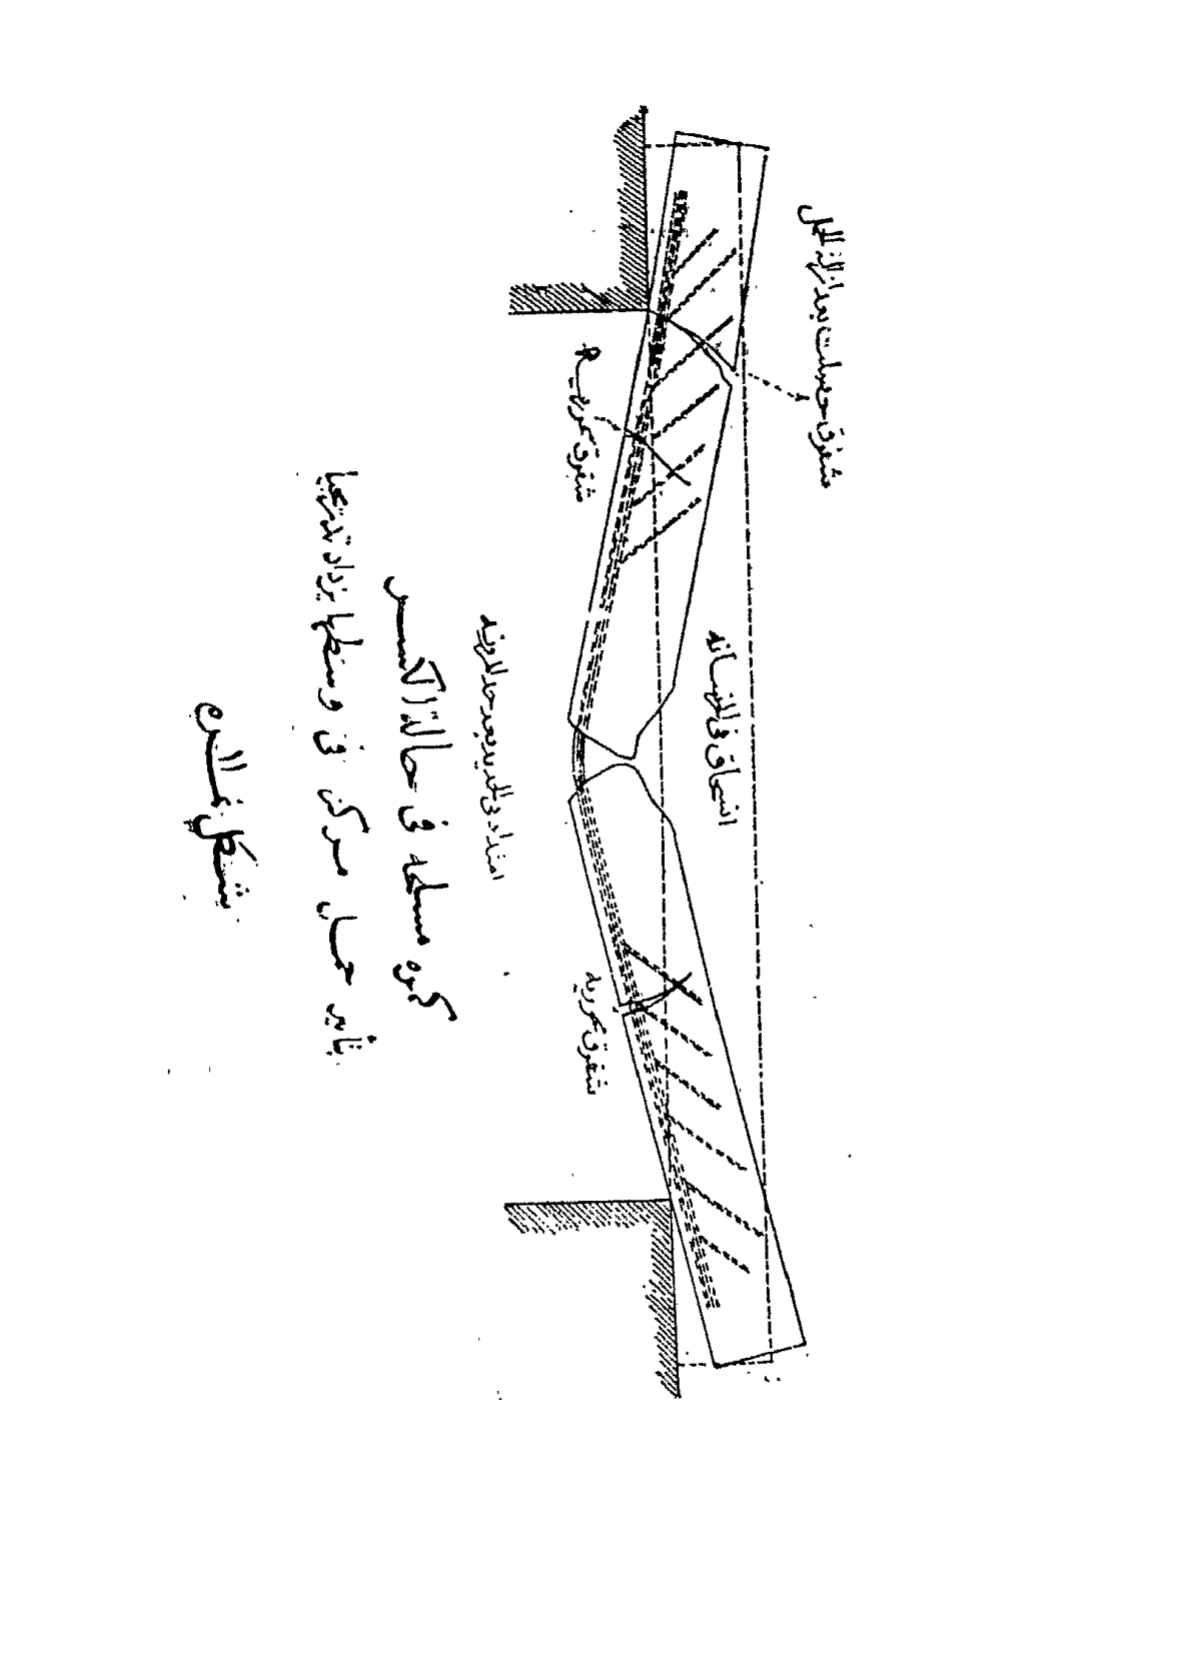 شقوق حصلت بعد ازالة الحمل
انسحاق فى الخرسانه
شقوق محوريه
شقوق محوريه
امتداد فى الحديد بعد حد المرونه
كمره مسلحه فى حالة الكسر
بتأثير حمل مركز فى وسطها يزداد تدريجيا
شكل